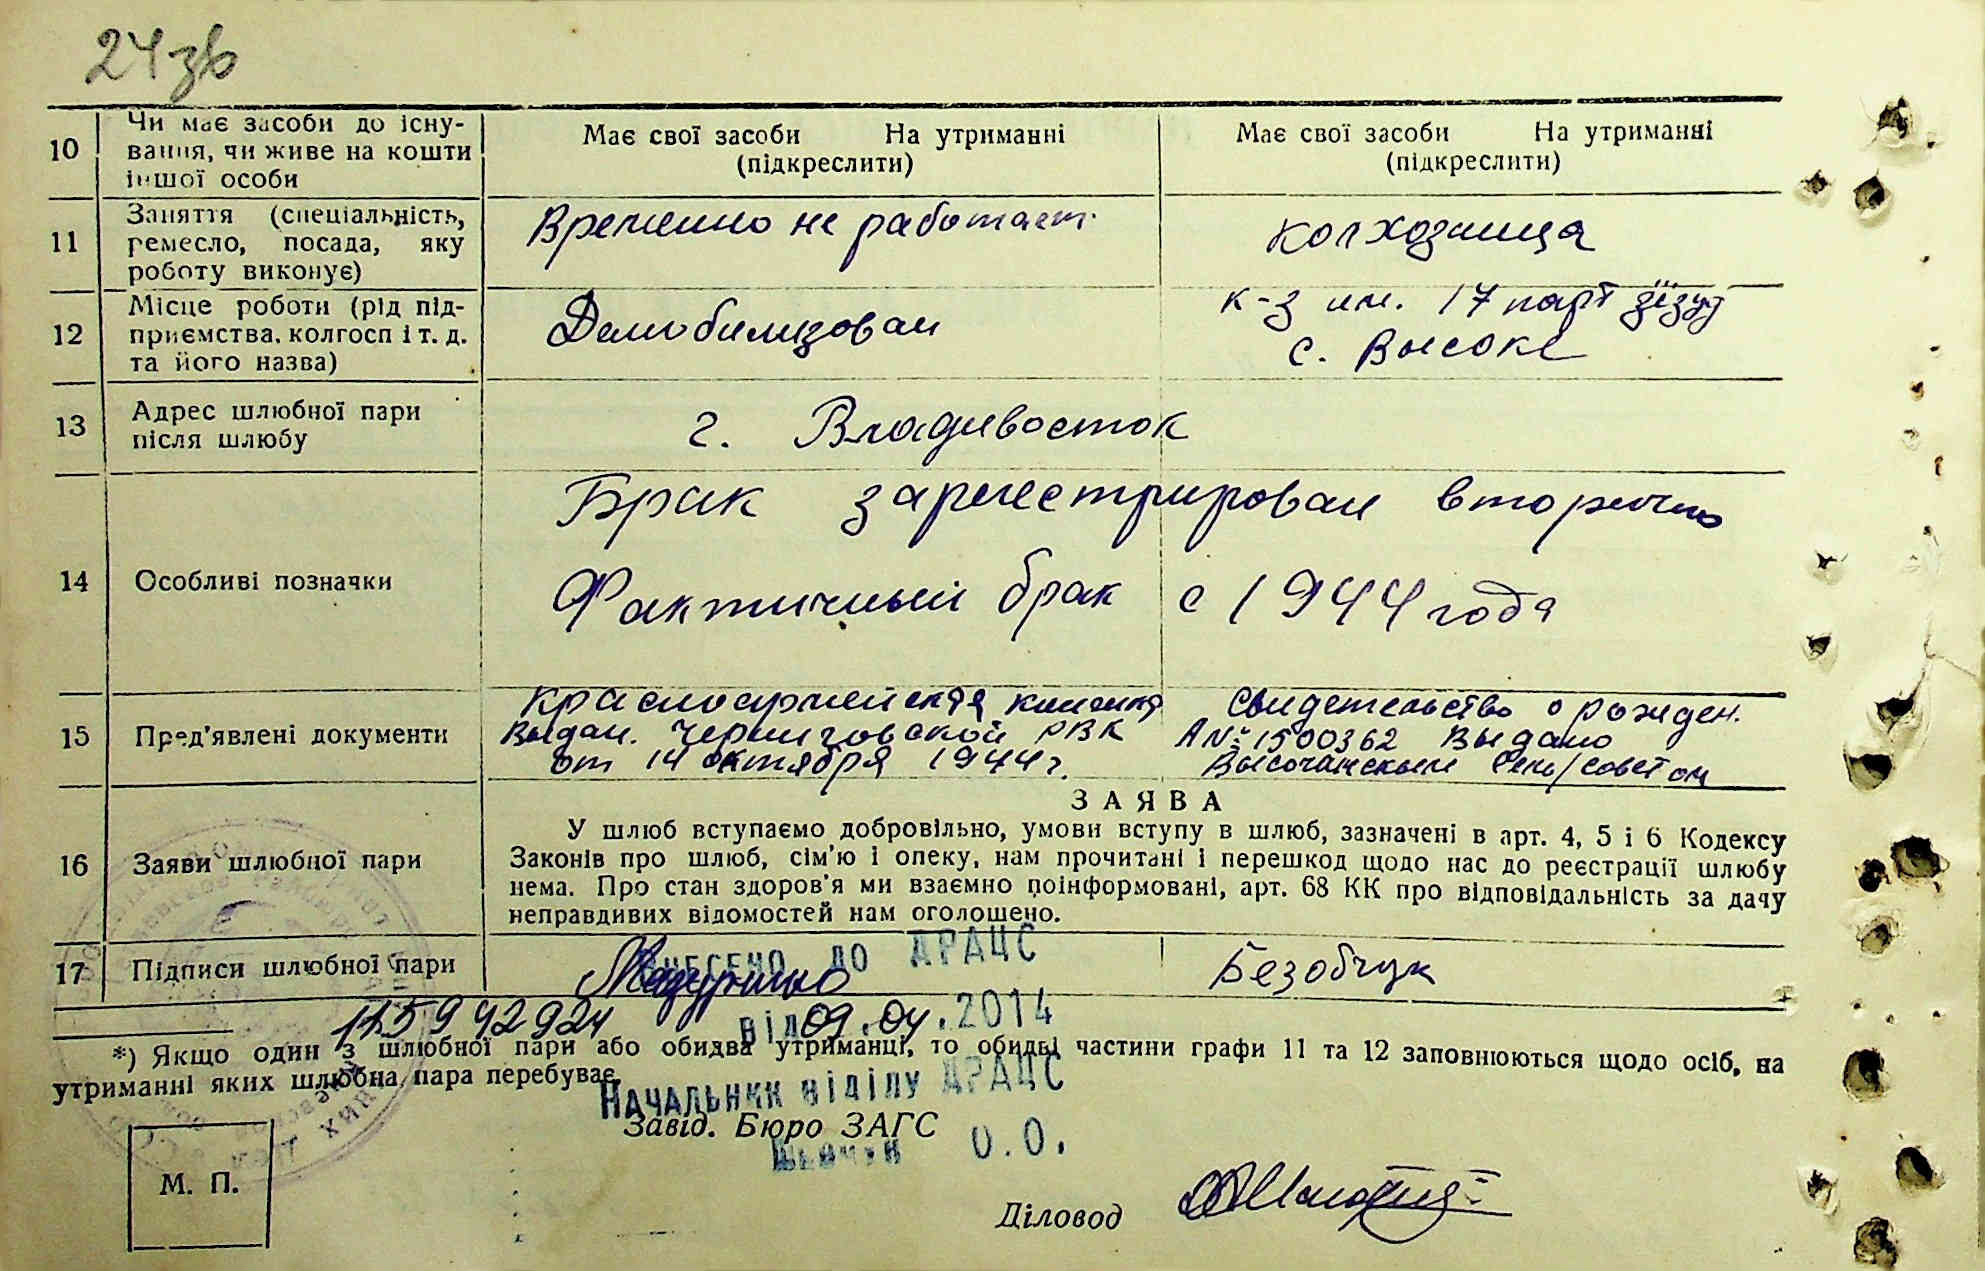 24зв
10 Чи має засоби до існу-
вання, чи живе на кошти
іншої особи
Має свої засоби На утриманні
(підкреслити)
Має свої засоби На утриманні
(підкреслити)
11 Заняття (спеціальність,
ремесло, посада, яку
роботу виконує)
Временно не работает
колхозница
12 Місце роботи (рід під-
приємства, колгосп і т. д.
та його назва)
Демобилизован
к-з им. 17 парт зїзду
с. Высоке
13 Адрес шлюбної пари
після шлюбу
г. Владивосток
14 Особливі позначки
Брак зарегестрирован вторично
Фактичный брак с 1944 года
15 Пред'явлені документи
Красноармейская книжка
Выдан. Черниговской РВК
от 14 октября 1944 г.
Свидетельство о рожден.
А № 1500362 Выдано
Высочанским Сель/советом
16 Заяви шлюбної пари
ЗАЯВА
У шлюб вступаємо добровільно, умови вступу в шлюб, зазначені в арт. 4, 5 і 6 Кодексу
Законів про шлюб, сім'ю і опеку, нам прочитані і перешкод щодо нас до реєстрації шлюбу
нема. Про стан здоров'я ми взаємно поінформовані, арт. 68 КК про відповідальність за дачу
неправдивих відомостей нам оголошено.
17 Підписи шлюбної пари
Безобчук
ВНЕСЕНО ДО ДРАЦС
115942924 від 09.04.2014
*) Якщо один з шлюбної пари або обидва утриманці, то обидві частини графи 11 та 12 заповнюються щодо осіб, на
утриманні яких шлюбна пара перебуває.
Начальник відділу ДРАЦС
Завід. Бюро ЗАГС
О.О.
М. П.
Діловод